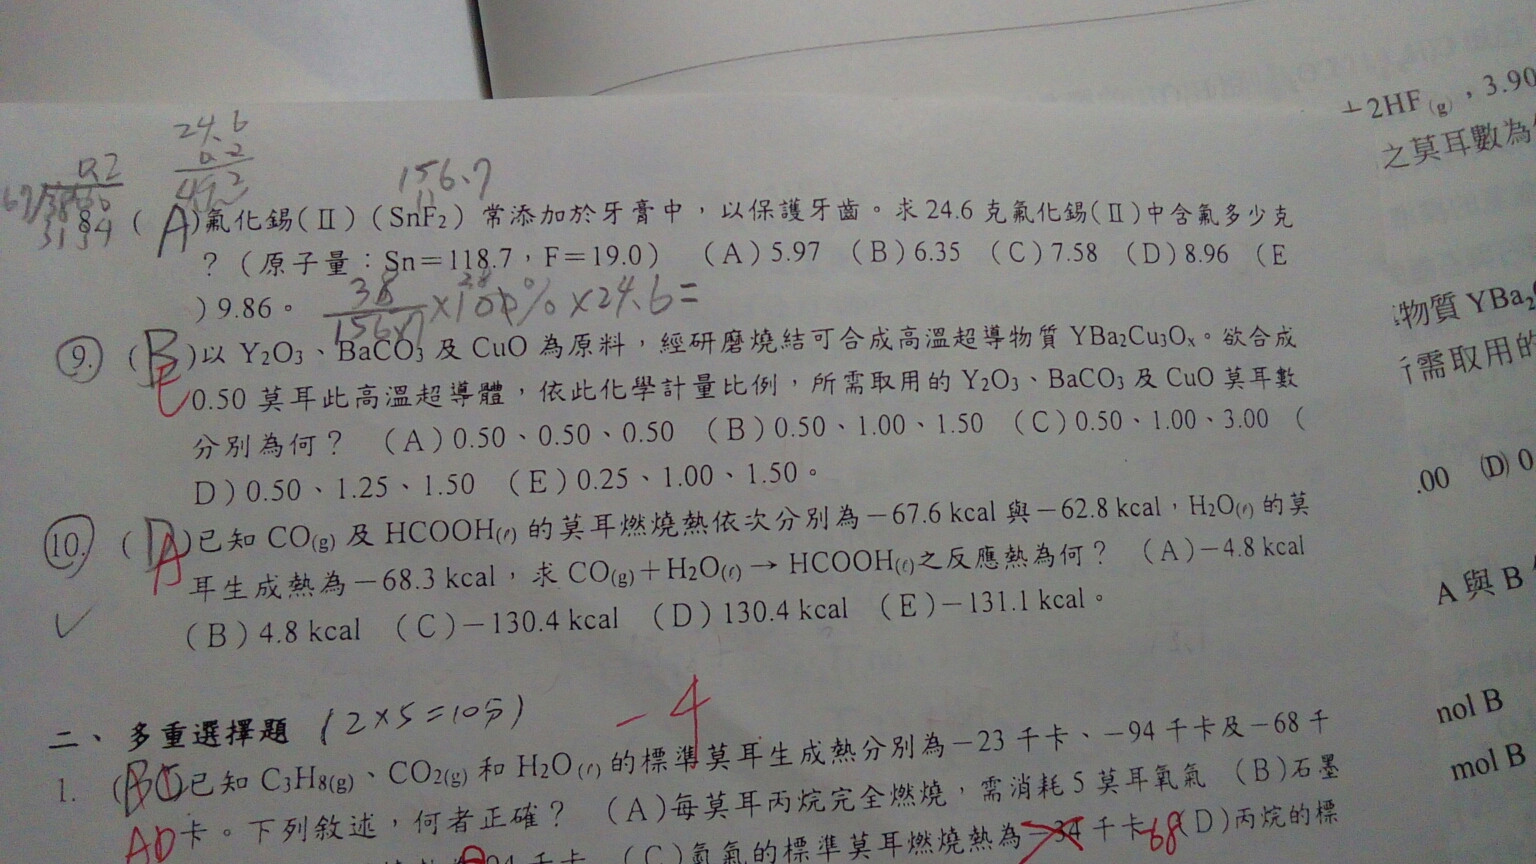 24.6
0.2
0.2
49.2
156.7
( A )氟化錫(Ⅱ)(SnF₂)常添加於牙膏中,以保護牙齒。求24.6克氟化錫(Ⅱ)中含氟多少克
?(原子量:Sn=118.7,F=19.0) (A)5.97 (B)6.35 (C)7.58 (D)8.96 (E
)9.86。
9. ( B )以 Y₂O₃、BaCO₃ 及 CuO 為原料,經研磨燒結可合成高溫超導物質 YBa₂Cu₃Oₓ。欲合成
E
0.50 莫耳此高溫超導體,依此化學計量比例,所需取用的 Y₂O₃、BaCO₃ 及 CuO 莫耳數
分別為何? (A)0.50、0.50、0.50 (B)0.50、1.00、1.50 (C)0.50、1.00、3.00 (
D)0.50、1.25、1.50 (E)0.25、1.00、1.50。
10. ( D )已知 CO(g) 及 HCOOH(ℓ) 的莫耳燃燒熱依次分別為-67.6 kcal 與-62.8 kcal,H₂O(ℓ) 的莫
A
耳生成熱為-68.3 kcal,求 CO(g)+H₂O(ℓ)→ HCOOH(ℓ)之反應熱為何? (A)-4.8 kcal
(B)4.8 kcal (C)-130.4 kcal (D)130.4 kcal (E)-131.1 kcal。
-4
二、多重選擇題 (2×5=10分)
1. 已知 C₃H₈(g)、CO₂(g) 和 H₂O(ℓ) 的標準莫耳生成熱分別為-23 千卡、-94 千卡及-68 千
AD
卡。下列敘述,何者正確? (A)每莫耳丙烷完全燃燒,需消耗 5 莫耳氧氣 (B)石墨
94 千卡 (C)氫氣的標準莫耳燃燒熱為-34 千卡 -68 (D)丙烷的標
+2HF(g),3.90
之莫耳數為
物質 YBa₂
需取用的
.00 (D) 0
A 與 B
nol B
mol B